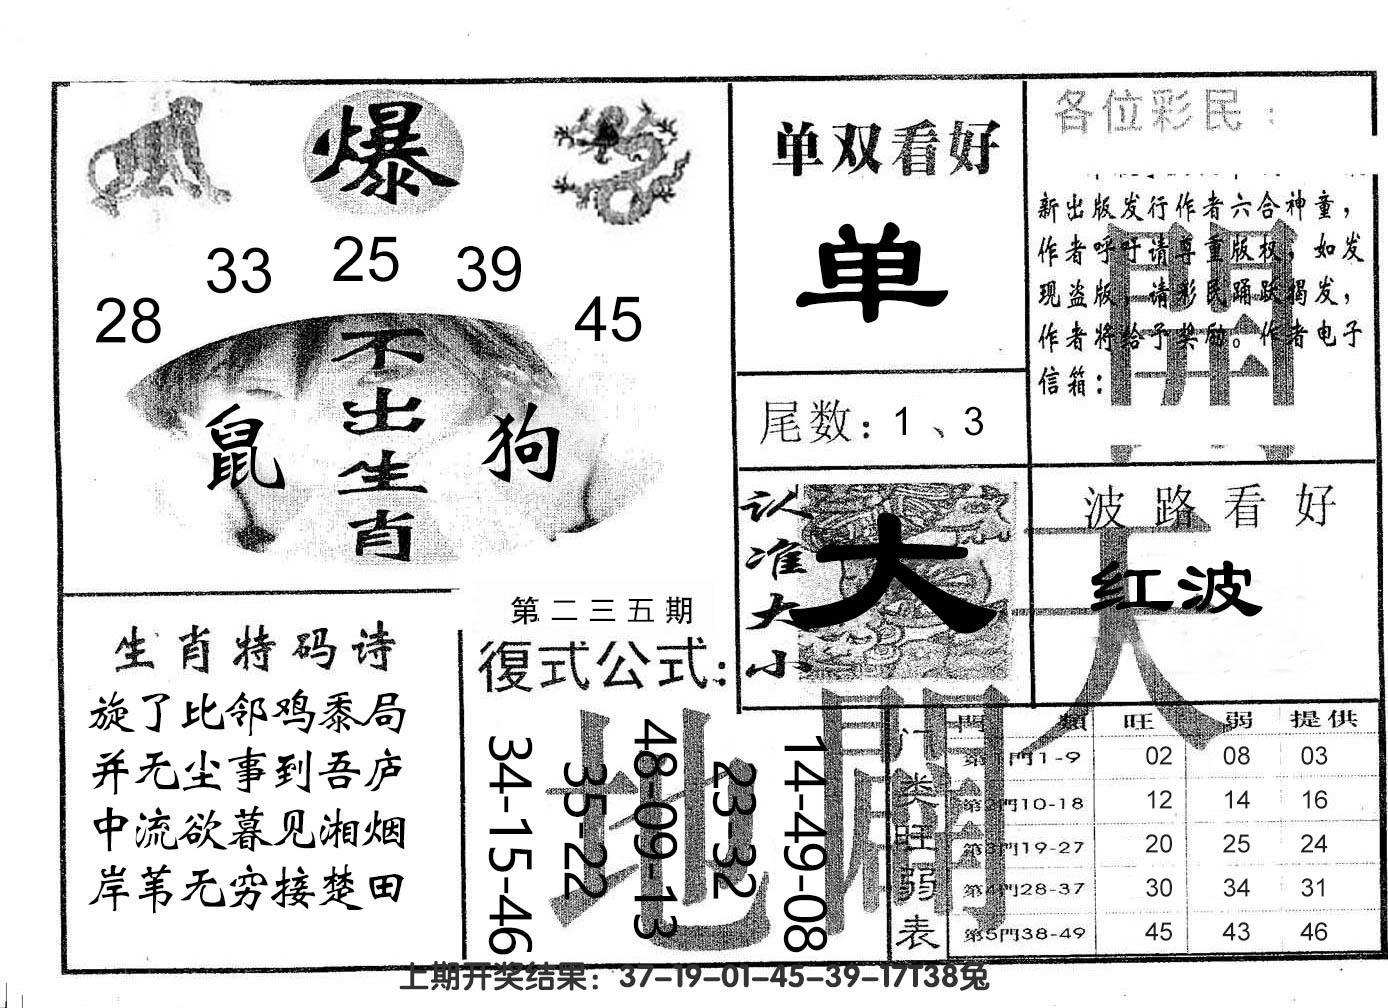 爆
28 33 25 39 45
不出生肖
鼠 狗
单双看好
单
尾数：1、3
各位彩民：
新出版发行作者六合神童，
作者呼吁请尊重版权，如发
现盗版，请彩民踊跃揭发，
作者将给予奖励。作者电子
信箱：
開
认准大小
大
波路看好
红波
天
生肖特码诗
旋了比邻鸡黍局
并无尘事到吾庐
中流欲暮见湘烟
岸苇无穷接楚田
第二三五期
復式公式：
34-15-46
35-22
48-09-13
23-32
14-49-08
地開
门类旺弱表
門類 旺 弱 提供
第1門1-9 02 08 03
第2門10-18 12 14 16
第3門19-27 20 25 24
第4門28-37 30 34 31
第5門38-49 45 43 46
上期开奖结果：37-19-01-45-39-17T38兔